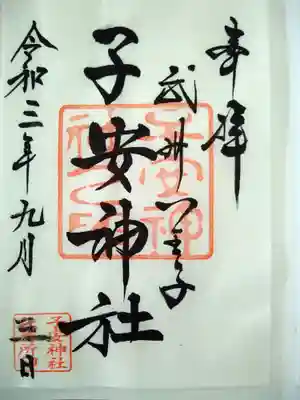 奉拝
武州八王子
子安神社
令和三年九月
三日
子安神社